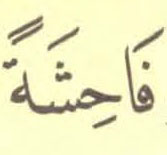 فَاحِشَةً